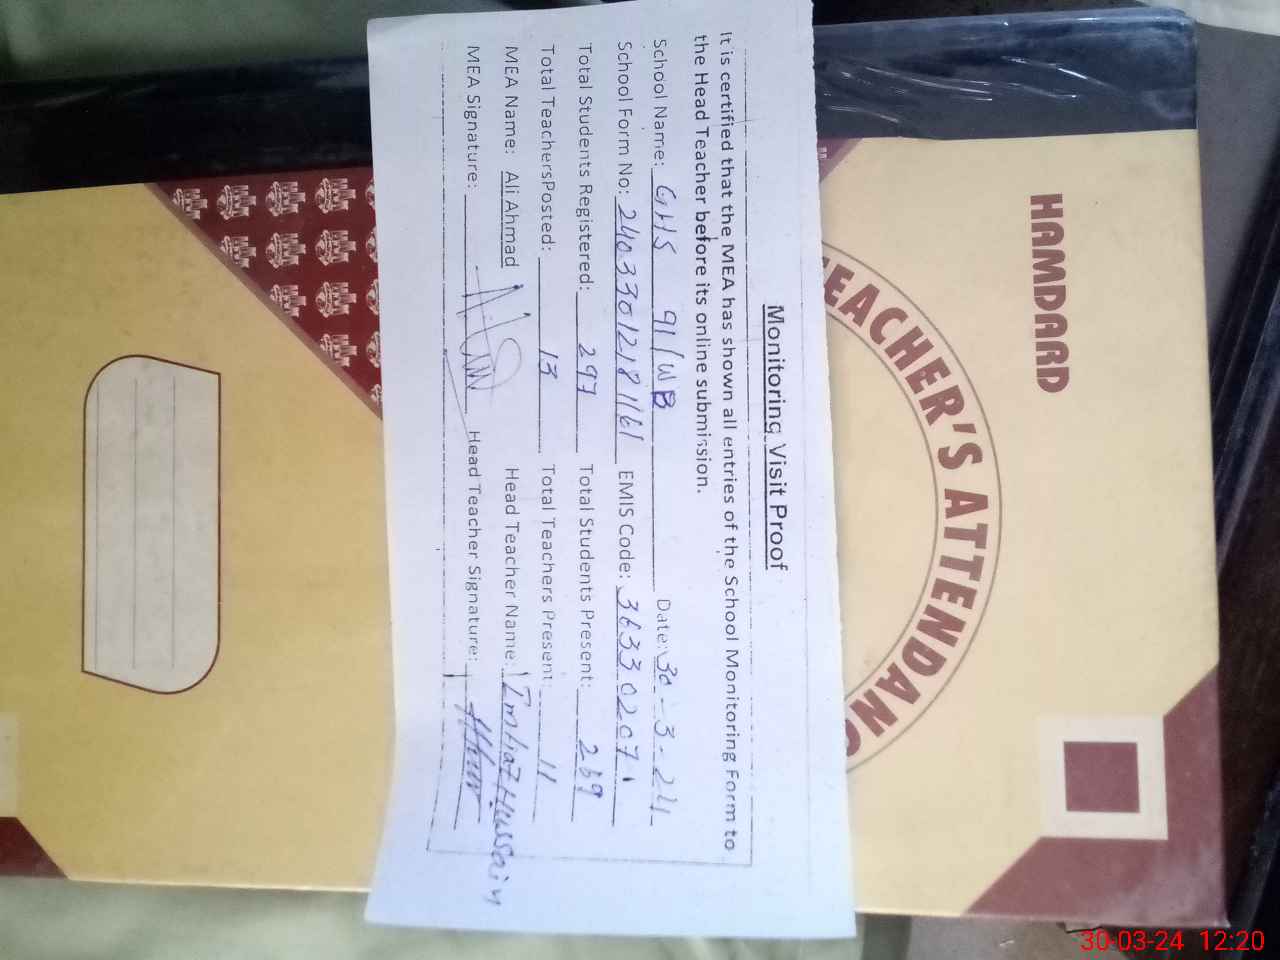 Monitoring Visit Proof
It is certified that the MEA has shown all entries of the School Monitoring Form to
the Head Teacher before its online submission.
School Name: GHS 91/WB Date: 30-3-24
School Form No: 24033012181161 EMIS Code: 36330207
Total Students Registered: 297 Total Students Present: 269
Total TeachersPosted: 13 Total Teachers Present: 11
MEA Name: Ali Ahmad Head Teacher Name: Imtiaz Hussain
MEA Signature: Head Teacher Signature:
HAMDARD
TEACHER'S ATTENDANC
30-03-24 12:20